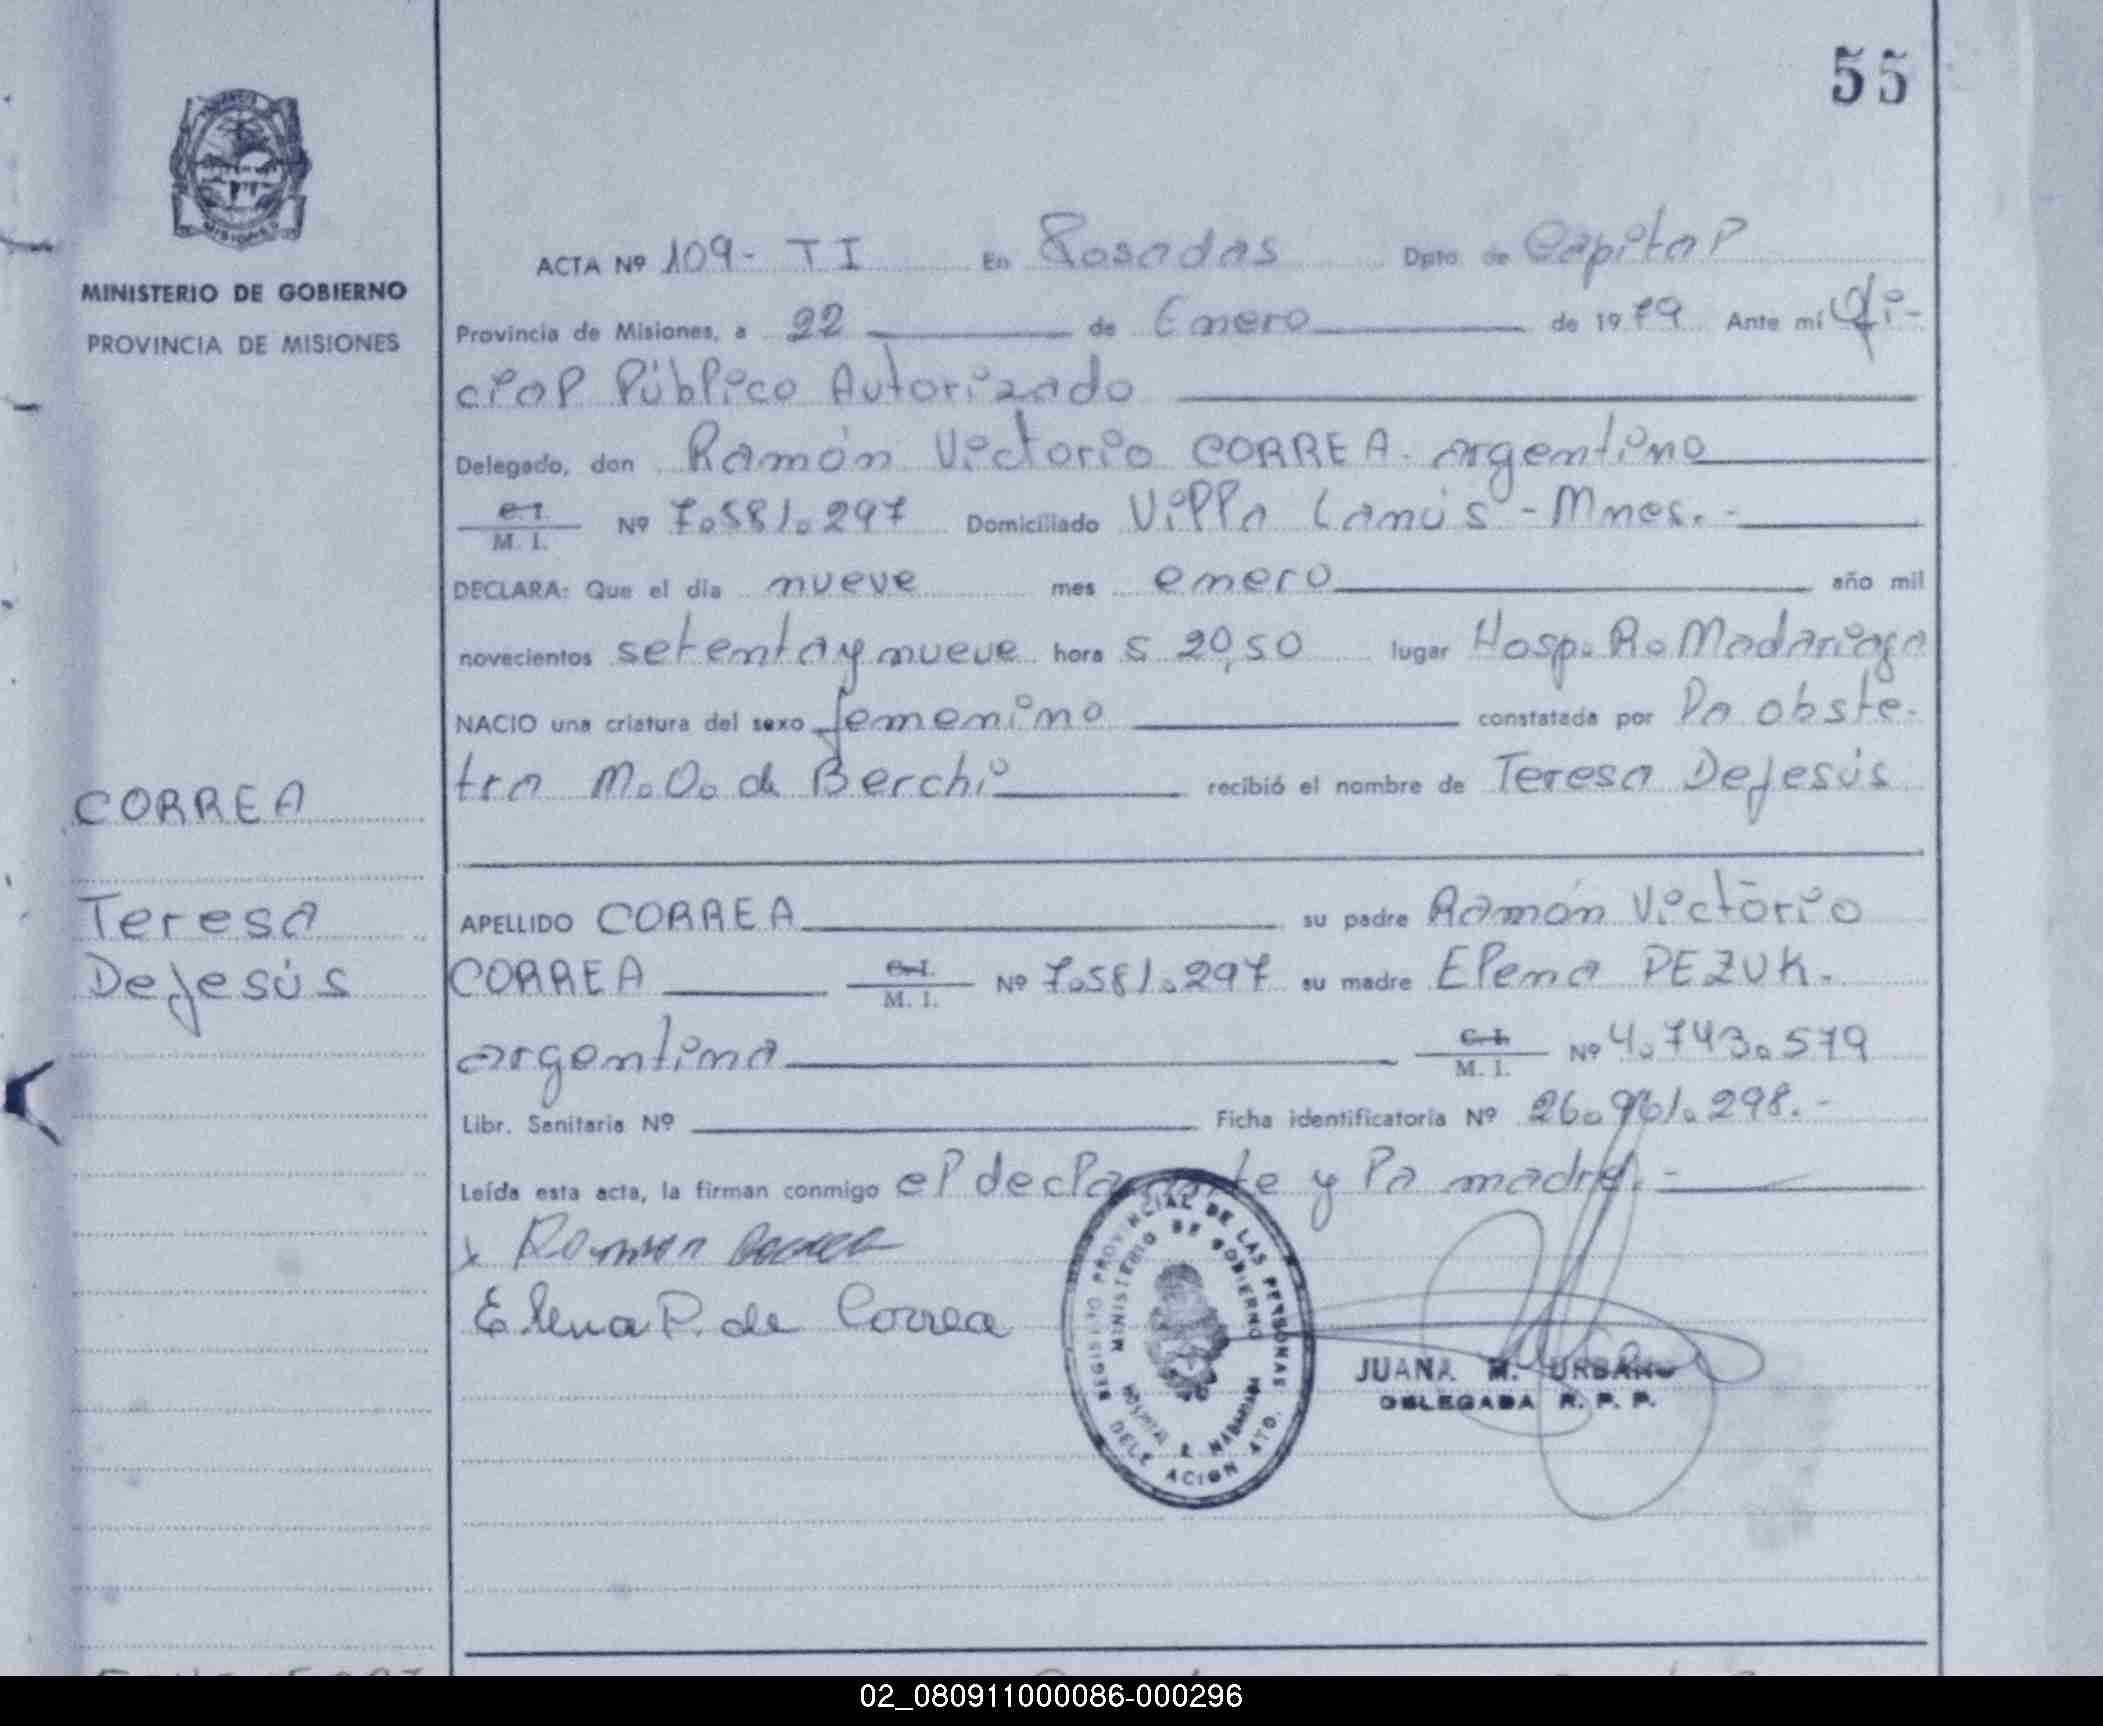 55
MINISTERIO DE GOBIERNO
PROVINCIA DE MISIONES
CORREA
Teresa
De Jesús
ACTA Nº 109- TI En Posadas Dpto. de Capital
Provincia de Misiones, a 22 de Enero de 1979 Ante mí Ofi-
cial Público Autorizado
Delegado, don Ramón Victorio CORREA. argentino
C.I. M. I. Nº 7.581.297 Domiciliado Villa Lanús - Mnes. -
DECLARA: Que el día nueve mes enero año mil
novecientos setenta y nueve hora s 20,50 lugar Hosp. R. Madariaga
NACIO una criatura del sexo femenino constatada por la obste-
tra M. O. de Berchi recibió el nombre de Teresa De Jesús
APELLIDO CORREA su padre Ramón Victorio
CORREA C.I. M. I. Nº 7.581.297 su madre Elena PEZUK.
argentina C.I. M. I. Nº 4.743.579
Libr. Sanitaria Nº Ficha identificatoria Nº 26.961.298. -
Leída esta acta, la firman conmigo el declarante y la madre. -
x Ramon Correa
Elena P. de Correa
REGISTRO PROVINCIAL DE LAS PERSONAS
MINISTERIO DE GOBIERNO
HOSPITAL R. MADARIAGA
DELEGACION 4TO.
JUANA M. URBANO
DELEGADA R. P. P.
02_080911000086-000296